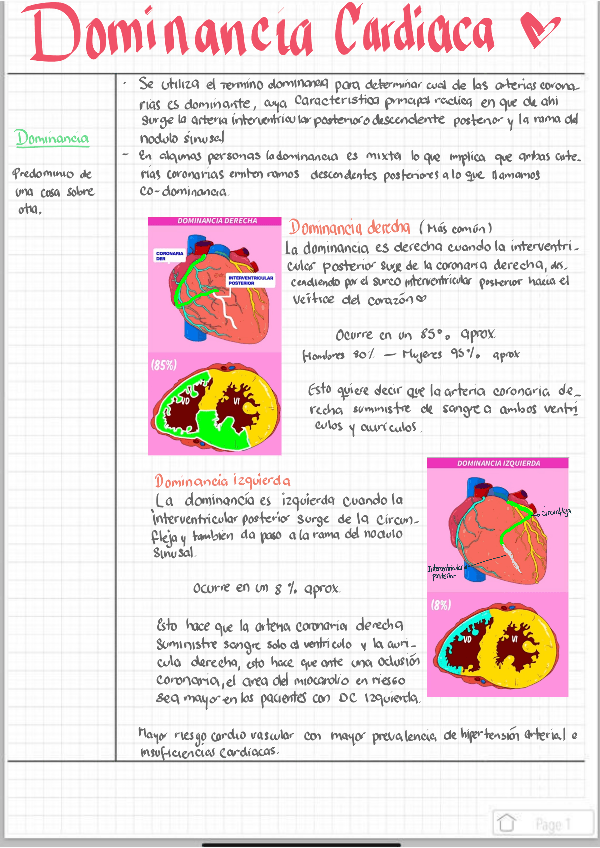 Dominancia Cardiaca
Dominancia
Predominio de
una cosa sobre
otra.
- Se utiliza el termino dominancia para determinar cual de las arterias corona-
rias es dominante, cuya caracteristica principal radica en que de ahi
surge la arteria interventricular posterior o descendente posterior y la rama del
nodulo sinusal
- En algunas personas la dominancia es mixta lo que implica que ambas arte-
rias coronarias emiten ramos descendentes posteriores a lo que llamamos
co-dominancia.
DOMINANCIA DERECHA
CORONARIA
DER
INTERVENTRICULAR
POSTERIOR
(85%)
VD
VI
Dominancia derecha (Más común)
La dominancia es derecha cuando la interventri-
cular posterior surge de la coronaria derecha, des-
cendiendo por el surco interventricular posterior hacia el
vertice del corazón
Ocurre en un 85% aprox.
Hombres 80% - Mujeres 95% aprox
Esto quiere decir que la arteria coronaria de-
recha suministre de sangre a ambos ventri
culos y auriculos.
Dominancia izquierda
La dominancia es izquierda cuando la
interventricular posterior surge de la circun-
fleja y tambien da paso a la rama del nodulo
sinusal.
Ocurre en un 8 % aprox.
Esto hace que la arteria coronaria derecha
suministre sangre solo al ventriculo y la auri-
cula derecha, esto hace que ante una oclusión
coronaria, el area del miocardio en riesgo
sea mayor en los pacientes con DC Izquierda.
DOMINANCIA IZQUIERDA
circunfleja
Interventricular
posterior
(8%)
VD
VI
Mayor riesgo cardio vascular con mayor prevalencia de hipertensión arterial e
insuficiencias cardiacas.
Page 1